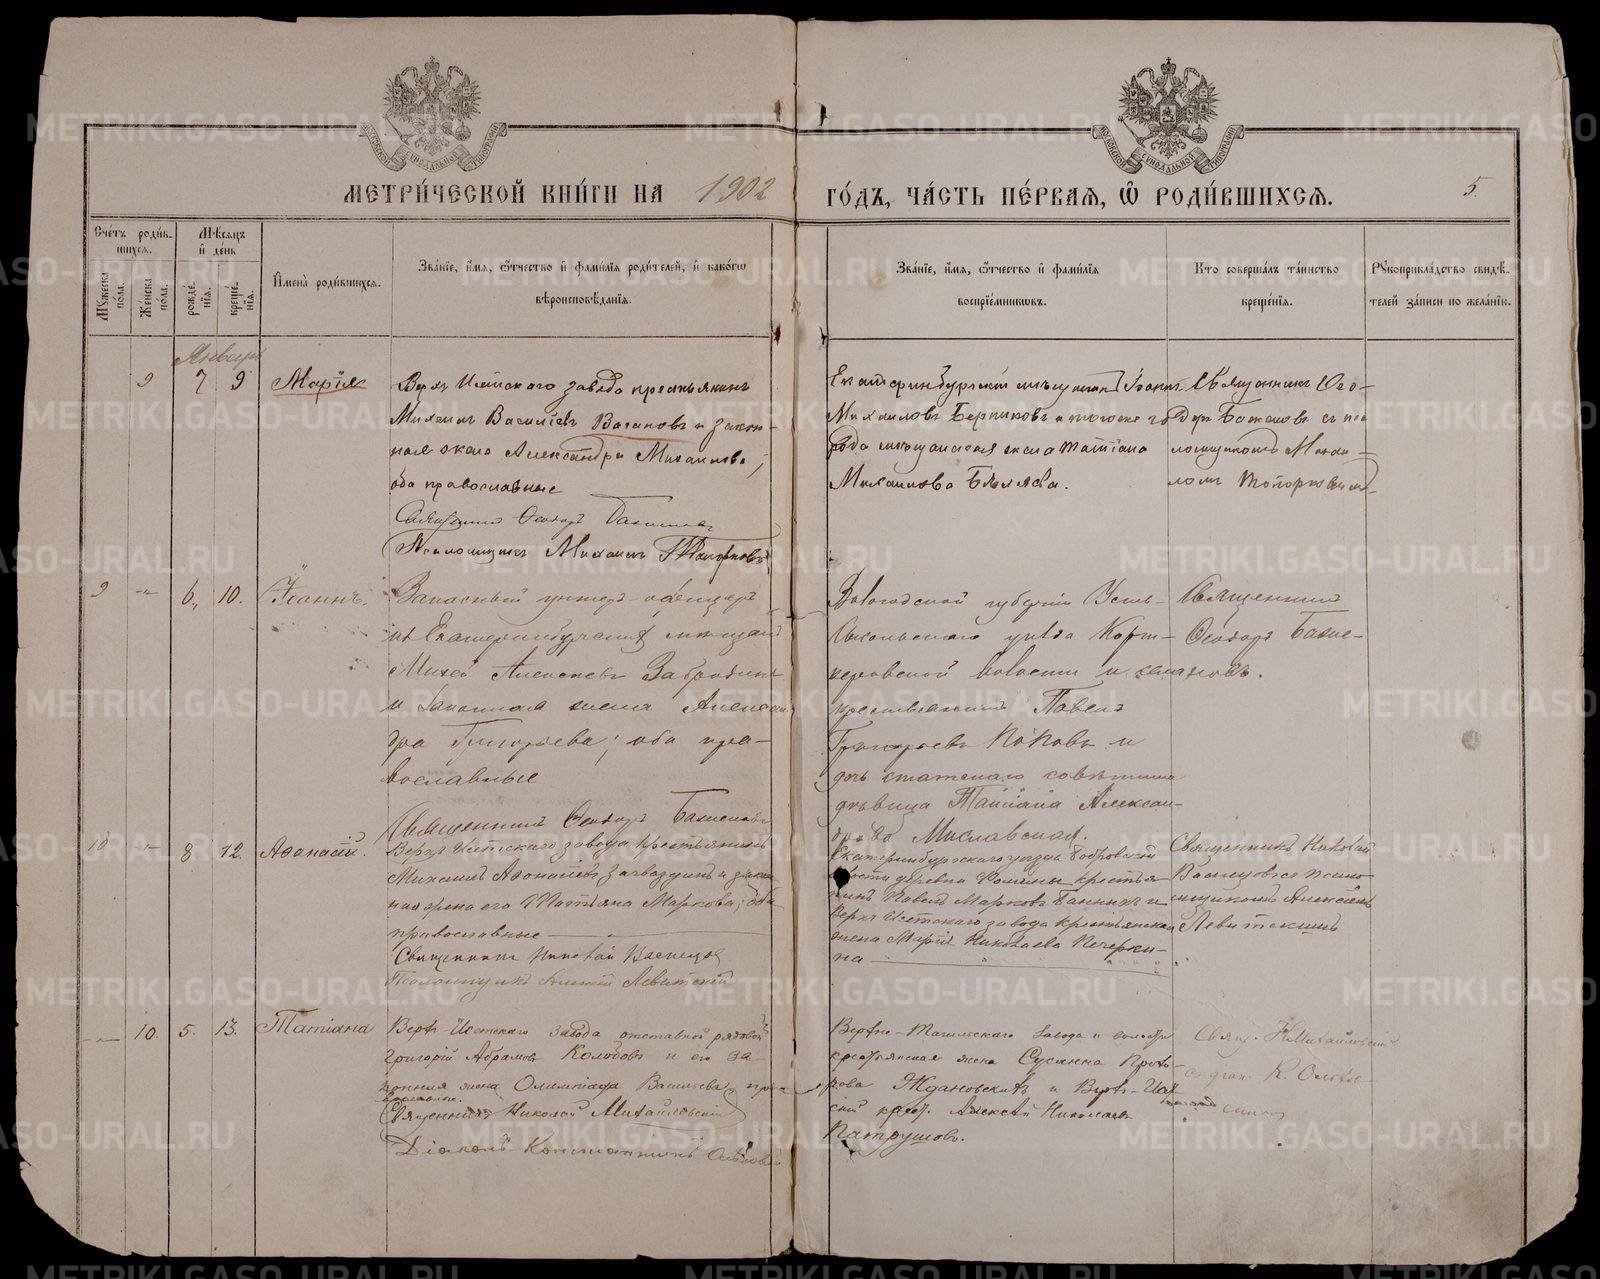 МЕТРИ́ЧЕСКОЙ КНИ́ГИ НА 1902 ГО́ДЪ, ЧА́СТЬ ПЕ́РВАЯ, Ѽ РОДИ́ВШИХСЯ.
5.
Сче́тъ роди́в-
шихся.
Му́жеска по́ла.
Же́нска по́ла.
Мѣ́сяцъ и́ де́нь
рожде́нїя.
креще́нїя.
И҆мена̀ роди́вшихся.
Зва́нїе, и́мя, ѻ҆́тчество и҆ фами́лїя роди́телей, и҆ како́гѡ
вѣроисповѣ́данїя.
Зва́нїе, и́мя, ѻ҆́тчество и҆ фами́лїя
воспрїе́мниковъ.
Кто̀ соверша́лъ та́инство
креще́нїя.
Рꙋкоприкла́дство свидѣ́-
телей за́писи по жела́нїю.
Январь
9 7 9 Марія
Верхъ Исетского завода крестьянинъ
Михаилъ Васильевъ Вагановъ и закон-
ная жена Александра Михаилова,
оба православные
Священникъ Ѳеодоръ
Псаломщикъ Михаилъ Топорковъ
Екатеринбургскій мѣщанинъ Іоаннъ
Михаиловъ Берниковъ и тогоже го-
рода мѣщанская жена Татіана
Михаилова Бѣляева.
Священникъ Ѳео-
доръ съ пса-
ломщикомъ Михаи-
ломъ Топорковымъ
9 -"- 6. 10. Іоаннъ.
Запасный унтеръ-офицеръ
изъ Екатеринбургскихъ мѣщанъ
Михей Алексѣевъ Забродинъ
и законная жена Алексан-
дра Григорьева; оба пра-
вославные
Священникъ Ѳеодоръ
Вологодской губерніи Усть-
Сысольскаго уѣзда Корт-
керовской волости и
крестьянинъ Павелъ
Григорьевъ Поповъ и
дочь статскаго совѣтника
дѣвица Татіана Алексан-
дрова Миславская.
Священникъ
Ѳеодоръ
10 -"- 8. 12. Аѳанасій.
Верхъ Исетскаго завода крестьянинъ
Михаилъ Аѳанасіевъ Загвоздинъ и закон-
ная жена его Татьяна Маркова; оба
православные
Священникъ Николай
Псаломщикъ Алексѣй Левитскій
Екатеринбургскаго уѣзда
волости деревни крестья-
нинъ Павелъ Марковъ Банныхъ и
Верхъ Исетскаго завода крестьянская
жена Марія Николаева Печерки-
на
Священникъ Николай
съ псало-
мщикомъ Алексѣемъ
Левитскимъ
-"- 10. 5. 13. Татіана
Верхъ-Исетскаго завода отставной рядовой
Григорій Абрамовъ Колобовъ и его за-
конная жена Олимпіада Васильева, пра-
вославные.
Священникъ Николай Михайловскій
Діаконъ Константинъ
Верхне-Тагильскаго завода и волости
крестьянская жена Сусанна
Ждановскихъ и Верхъ-Исет-
скій крест. Алексѣй Николаевъ
Патрушовъ.
Свящ. Н. Михайловскій
съ діак. К.
METRIKI.GASO-URAL.RU